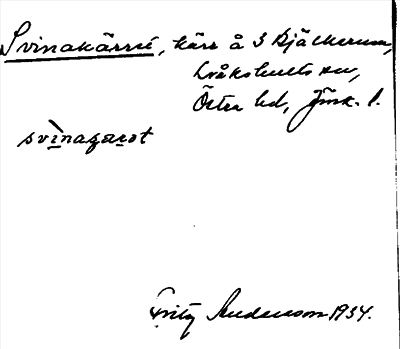 Svinakärret, kärr å 3 Bjälkerum,
Lråkshults sn,
Östra hd, Jönk. l.
svìnaçarət
Fritz Andersson 1934.